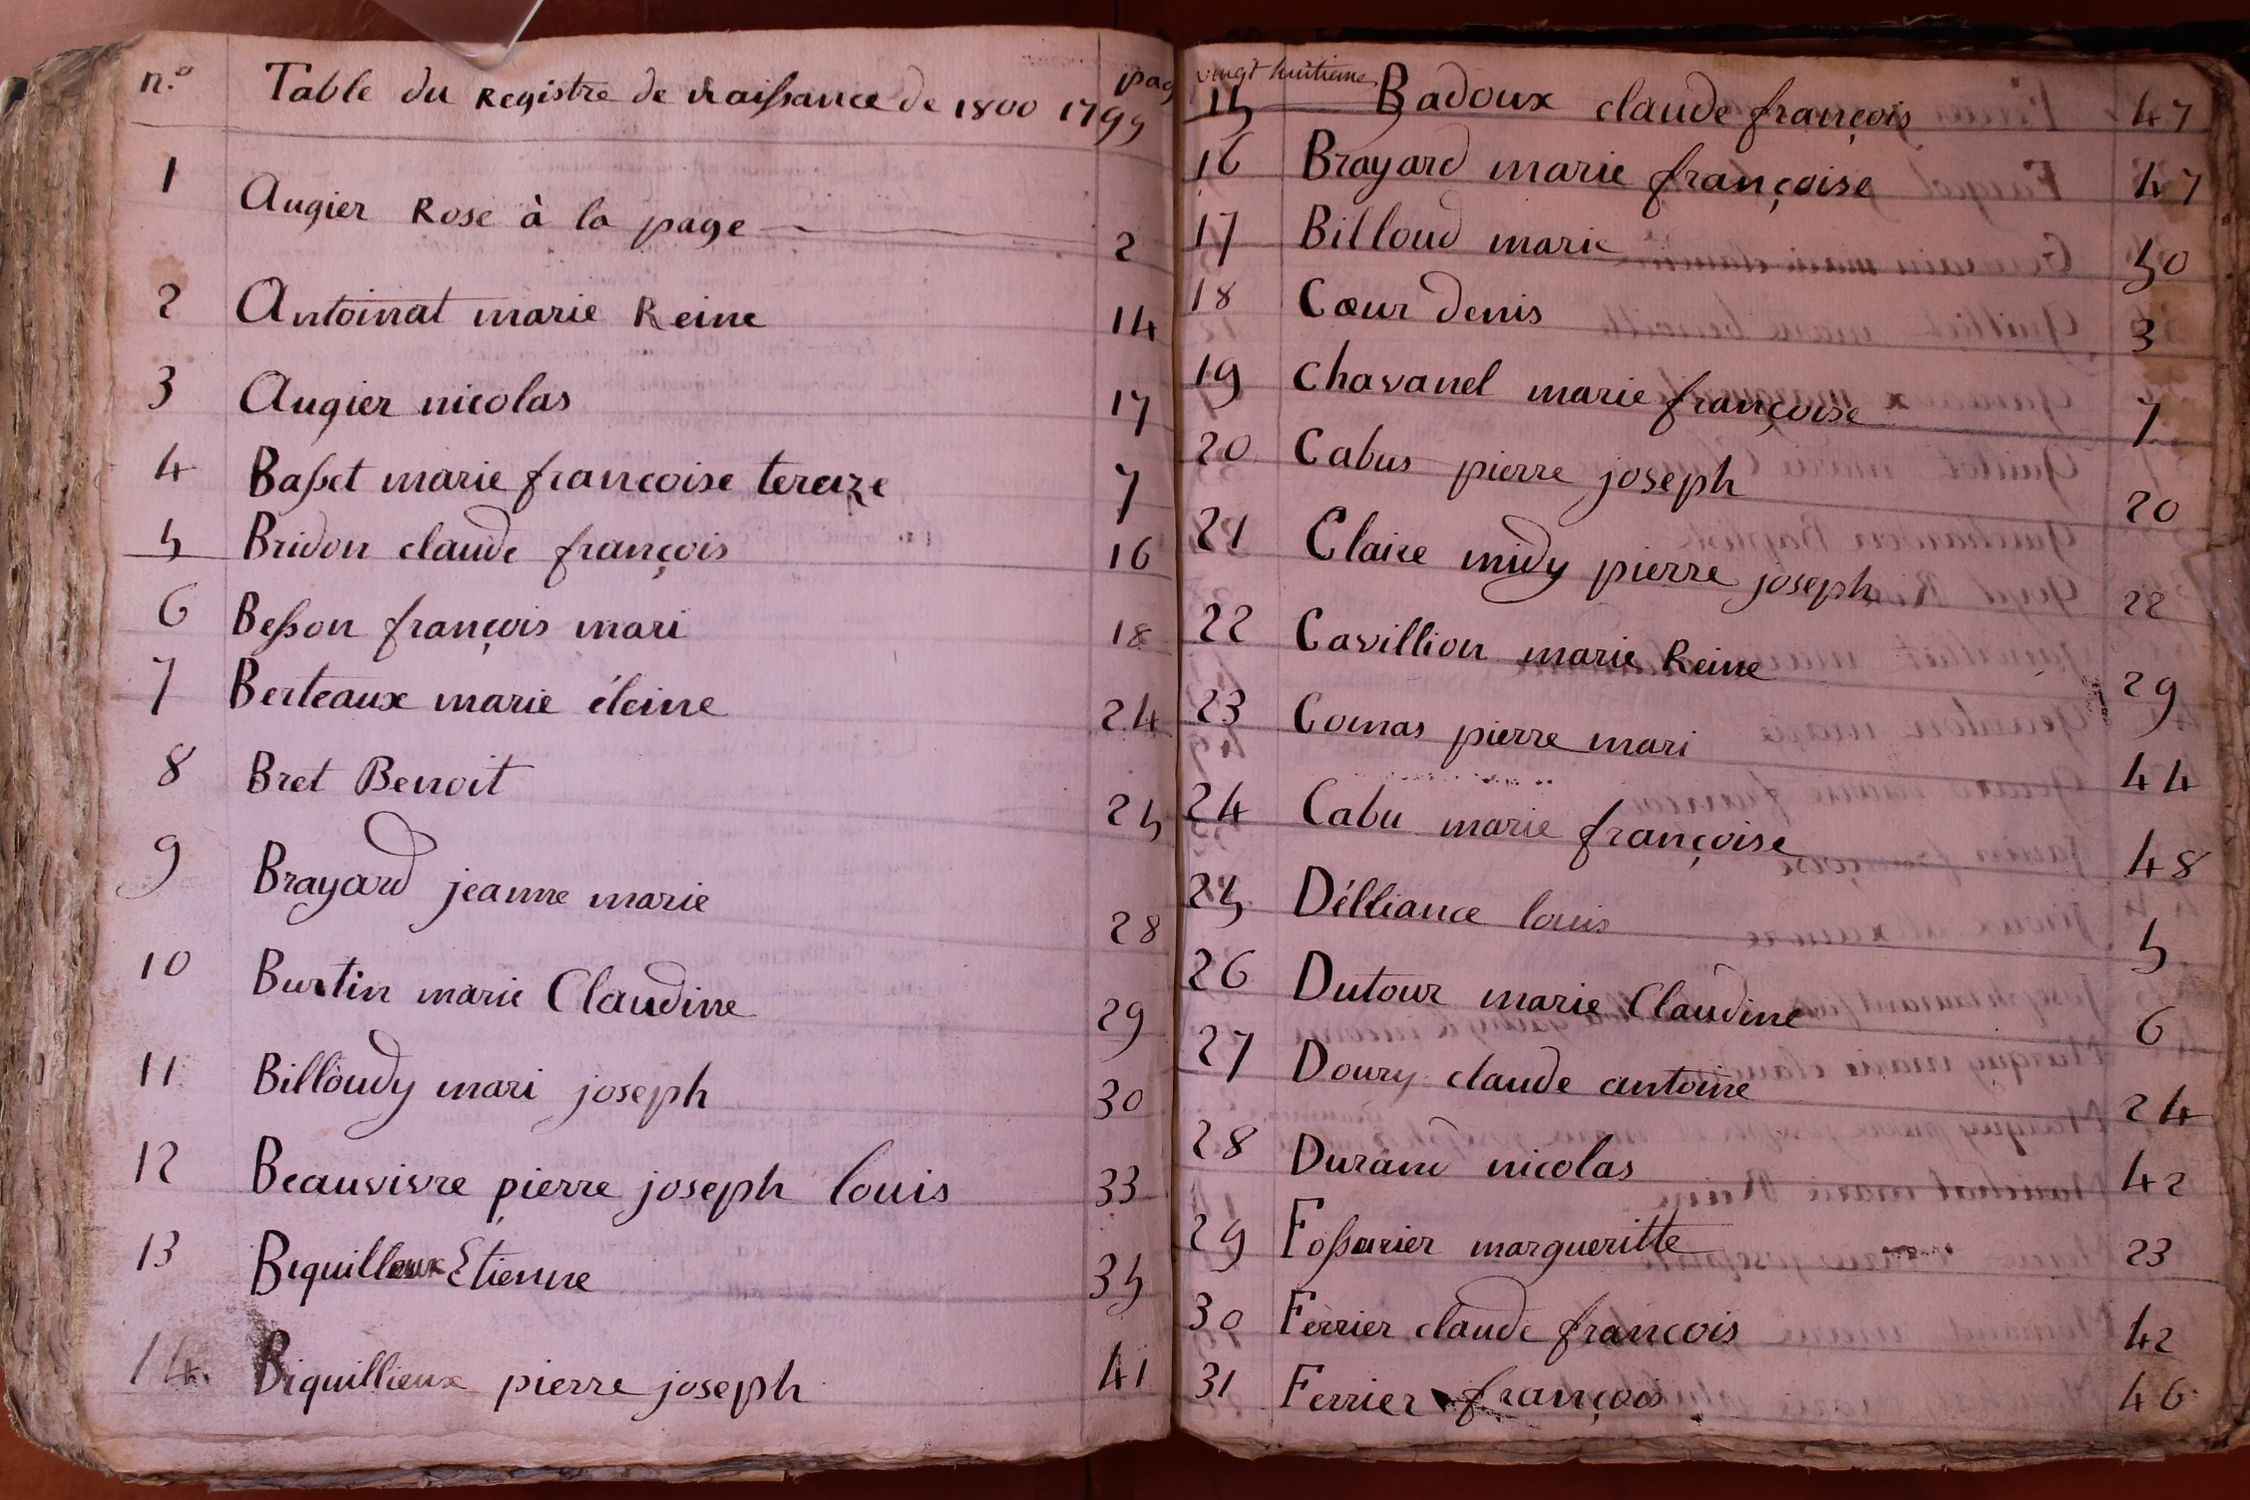 n.º Table du Registre de naissance de 1800 1799 pag
1 Augier Rose à la page 2
2 Antoinat marie Reine 14
3 Augier nicolas 17
4 Basset marie francoise tereze 7
5 Bridon claude françois 16
6 Besson françois mari 18
7 Berteaux marie éleine 24
8 Bret Benoit 25
9 Brayard jeanne marie 28
10 Burtin marie Claudine 29
11 Billoudy mari joseph 30
12 Beauvivre pierre joseph louis 33
13 Biquilleux Etienne 35
14. Biquillieux pierre joseph 41
vingt huitieme
15 Badoux claude françois 47
16 Brayard marie françoise 47
17 Billoud marie 50
18 Cœur denis 3
19 Chavanel marie françoise 7
20 Cabus pierre joseph 20
21 Claire midy pierre joseph 22
22 Cavillion marie Reine 29
23 Comas pierre mari 44
24 Cabu marie françoise 48
25 Délliance louis 5
26 Dutour marie Claudine 6
27 Doury claude antoine 24
28 Durand nicolas 42
29 Fossurier margueritte 23
30 Ferrier claude francois 42
31 Ferrier françois 46